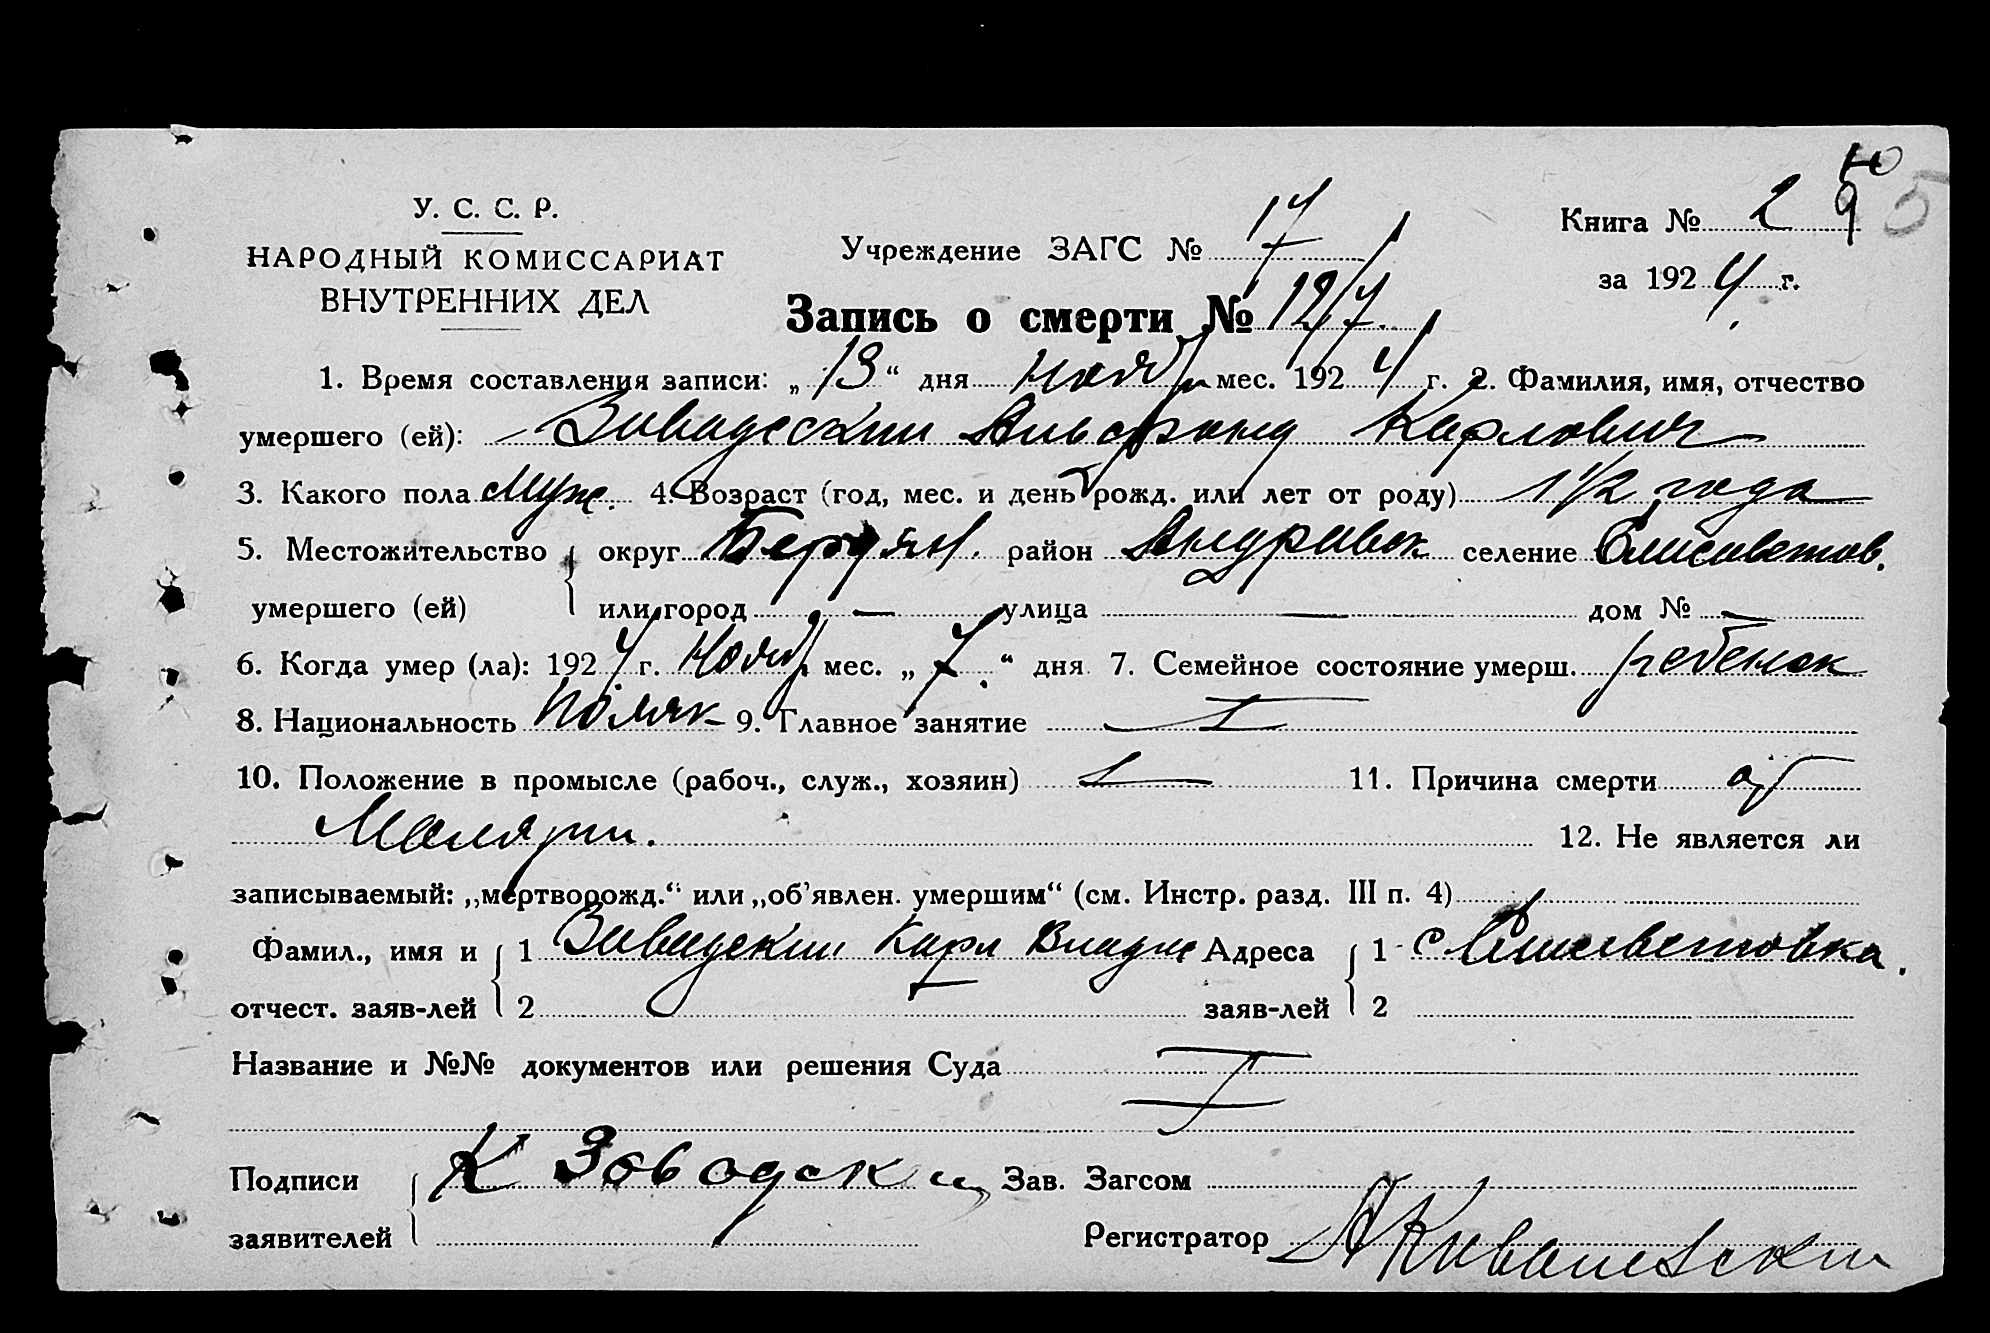 У. С. С. Р.
НАРОДНЫЙ КОМИССАРИАТ
ВНУТРЕННИХ ДЕЛ
Учреждение ЗАГС № 17
Книга № 2
за 1924 г.
Запись о смерти № 12/7
1. Время составления записи: „13“ дня нояб мес. 1924 г. 2. Фамилия, имя, отчество
умершего (ей): Завадесский Альфонд Карлович
3. Какого пола муж. 4. Возраст (год, мес. и день рожд. или лет от роду) 1 1/2 года
5. Местожительство округ Бердян. район Андравок селение Елисаветов.
умершего (ей) или город — улица — дом № —
6. Когда умер (ла): 1924 г. Нояб. мес. „7“ дня 7. Семейное состояние умерш. ребенок
8. Национальность Поляк 9. Главное занятие —
10. Положение в промысле (рабоч., служ., хозяин) — 11. Причина смерти от
Малярии. 12. Не является ли
записываемый: „мертворожд.“ или „об'явлен. умершим“ (см. Инстр. разд. III п. 4)
Фамил., имя и 1 Завадский Карл Владис Адреса 1 - с Елисаветовка.
отчест. заяв-лей 2 заяв-лей 2
Название и №№ документов или решения Суда
Подписи К Зоводски Зав. Загсом
заявителей Регистратор